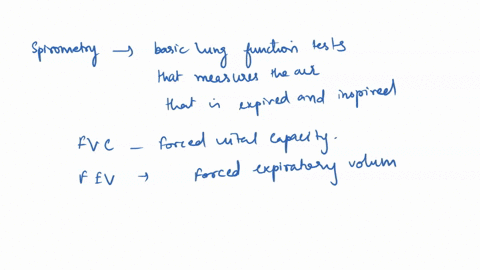 Spirometry → basic lung function tests
that measures the air
that is expired and inspired
FVC - forced vital capacity.
FEV → forced expiratory volum